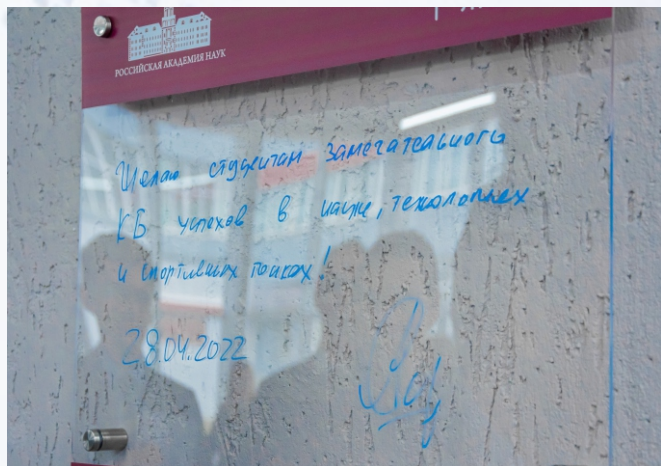 РОССИЙСКАЯ АКАДЕМИЯ НАУК
Желаю студентам замечательного
КБ успехов в науке, технологиях
и спортивных гонках!
28.04.2022